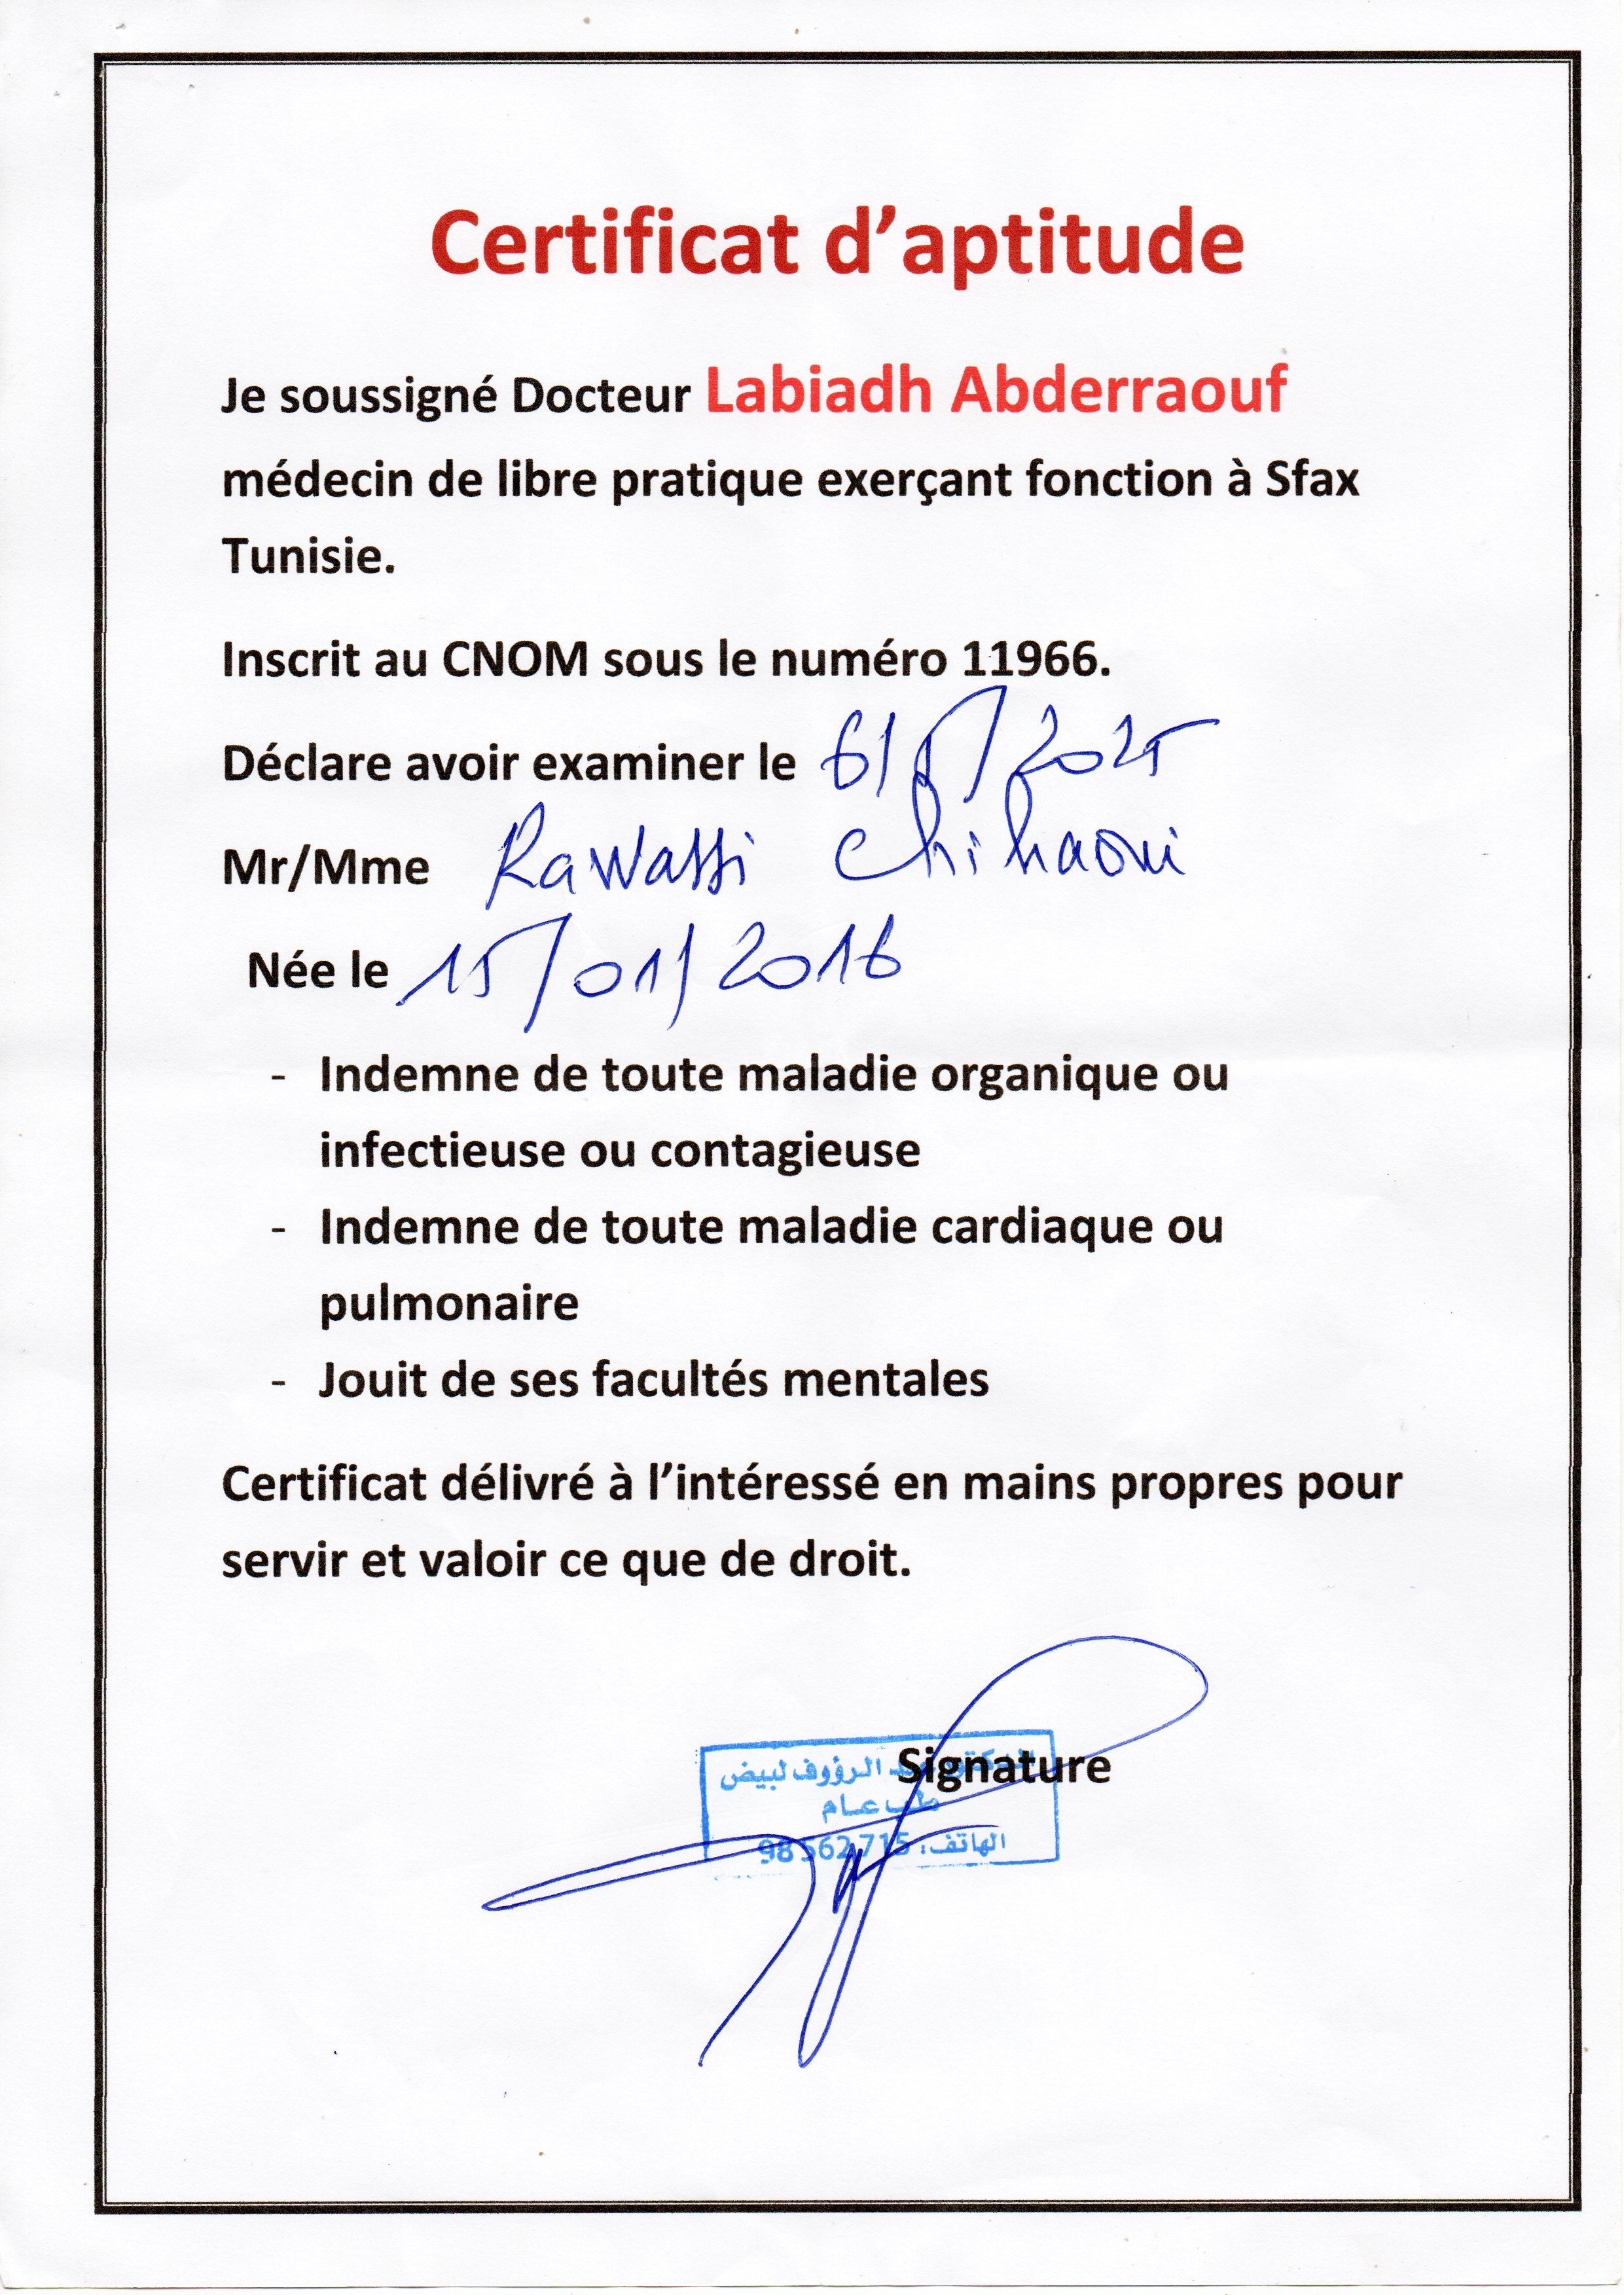 Certificat d'aptitude
Je soussigné Docteur Labiadh Abderraouf
médecin de libre pratique exerçant fonction à Sfax
Tunisie.
Inscrit au CNOM sous le numéro 11966.
Déclare avoir examiner le 6/5/2025
Mr/Mme Rawassi Chihaoui
Née le 15/01/2016
- Indemne de toute maladie organique ou
infectieuse ou contagieuse
- Indemne de toute maladie cardiaque ou
pulmonaire
- Jouit de ses facultés mentales
Certificat délivré à l'intéressé en mains propres pour
servir et valoir ce que de droit.
Signature
الدكتور عبد الرؤوف لبيض
طب عام
الهاتف: 98 562 715